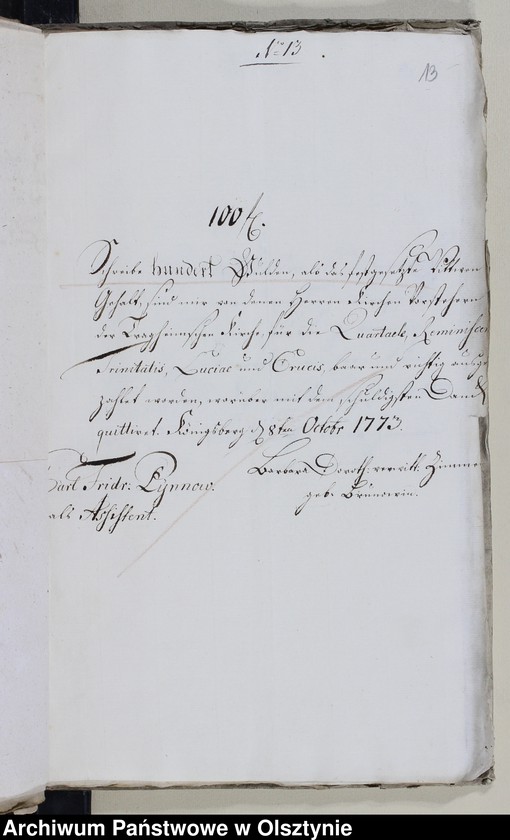 No 13.
13
100 f.
Schreibe hundert Gulden, als das festgesetzte Wittwen
Gehalt, sind mir von denen Herren Kirchen Vorstehern
der Tragheimschen Kirche, für die Quartale, Reminisce
Trinitatis, Luciae und Crucis, baar und richtig ausge
zahlet worden, worüber mit dem schuldigsten Danck
quittiret. Königsberg d 8ten Octobr 1773.
Carl Fridr:
Barbara Doroth. verwitt. Zimme
als Assistent.
geb. Brunowin.
Archiwum Państwowe w Olsztynie